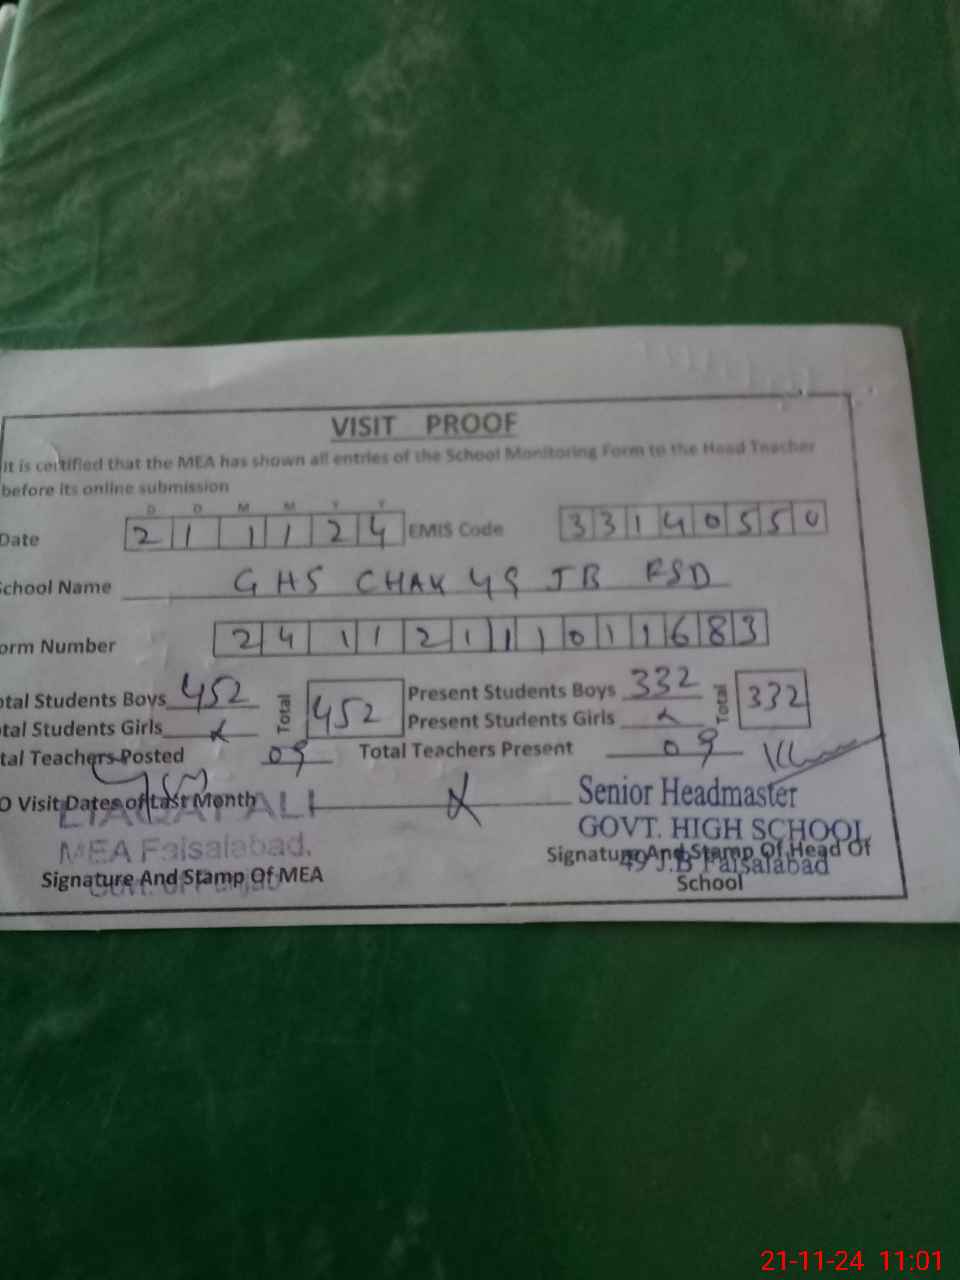 VISIT PROOF
It is certified that the MEA has shown all entries of the School Monitoring Form to the Head Teacher
before its online submission
D D M M Y Y
Date 21 11 24 EMIS Code 33140550
chool Name GHS CHAK 49 JB FSD
orm Number 241121110111683
otal Students Boys 452 Total 452 Present Students Boys 332 Total 332
otal Students Girls x Present Students Girls x
tal Teachers Posted 09 Total Teachers Present 09
O Visit Dates of Last Month x
LIAQAT ALI
MEA Faisalabad.
Signature And Stamp Of MEA
Senior Headmaster
GOVT. HIGH SCHOOL
49 J.B Faisalabad
Signature And Stamp Of Head Of
School
21-11-24 11:01